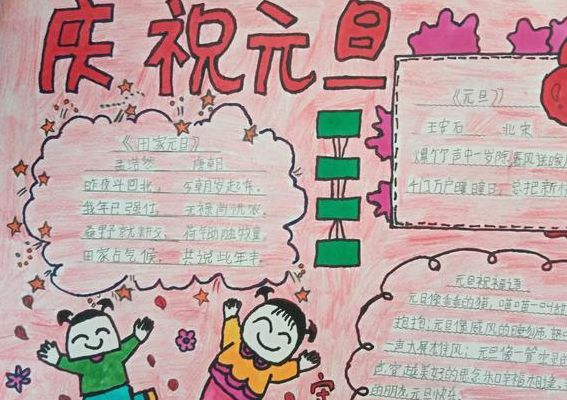 庆祝元旦
《田家元日》
孟浩然 唐朝
昨夜斗回北, 今朝岁起东。
我年已强仕, 无禄尚忧农。
桑野就耕父, 荷锄随牧童。
田家占气候, 共说此年丰
《元旦》
王安石 北宋
爆竹声中一岁除,春风送暖
千门万户曈曈日,总把新
元旦祝福语
元旦像 的猫,喵喵一叫
抱抱;元旦像威风的
一声大展雄风;元旦像一管
美好的思念 幸福相连,
的朋友元旦快乐